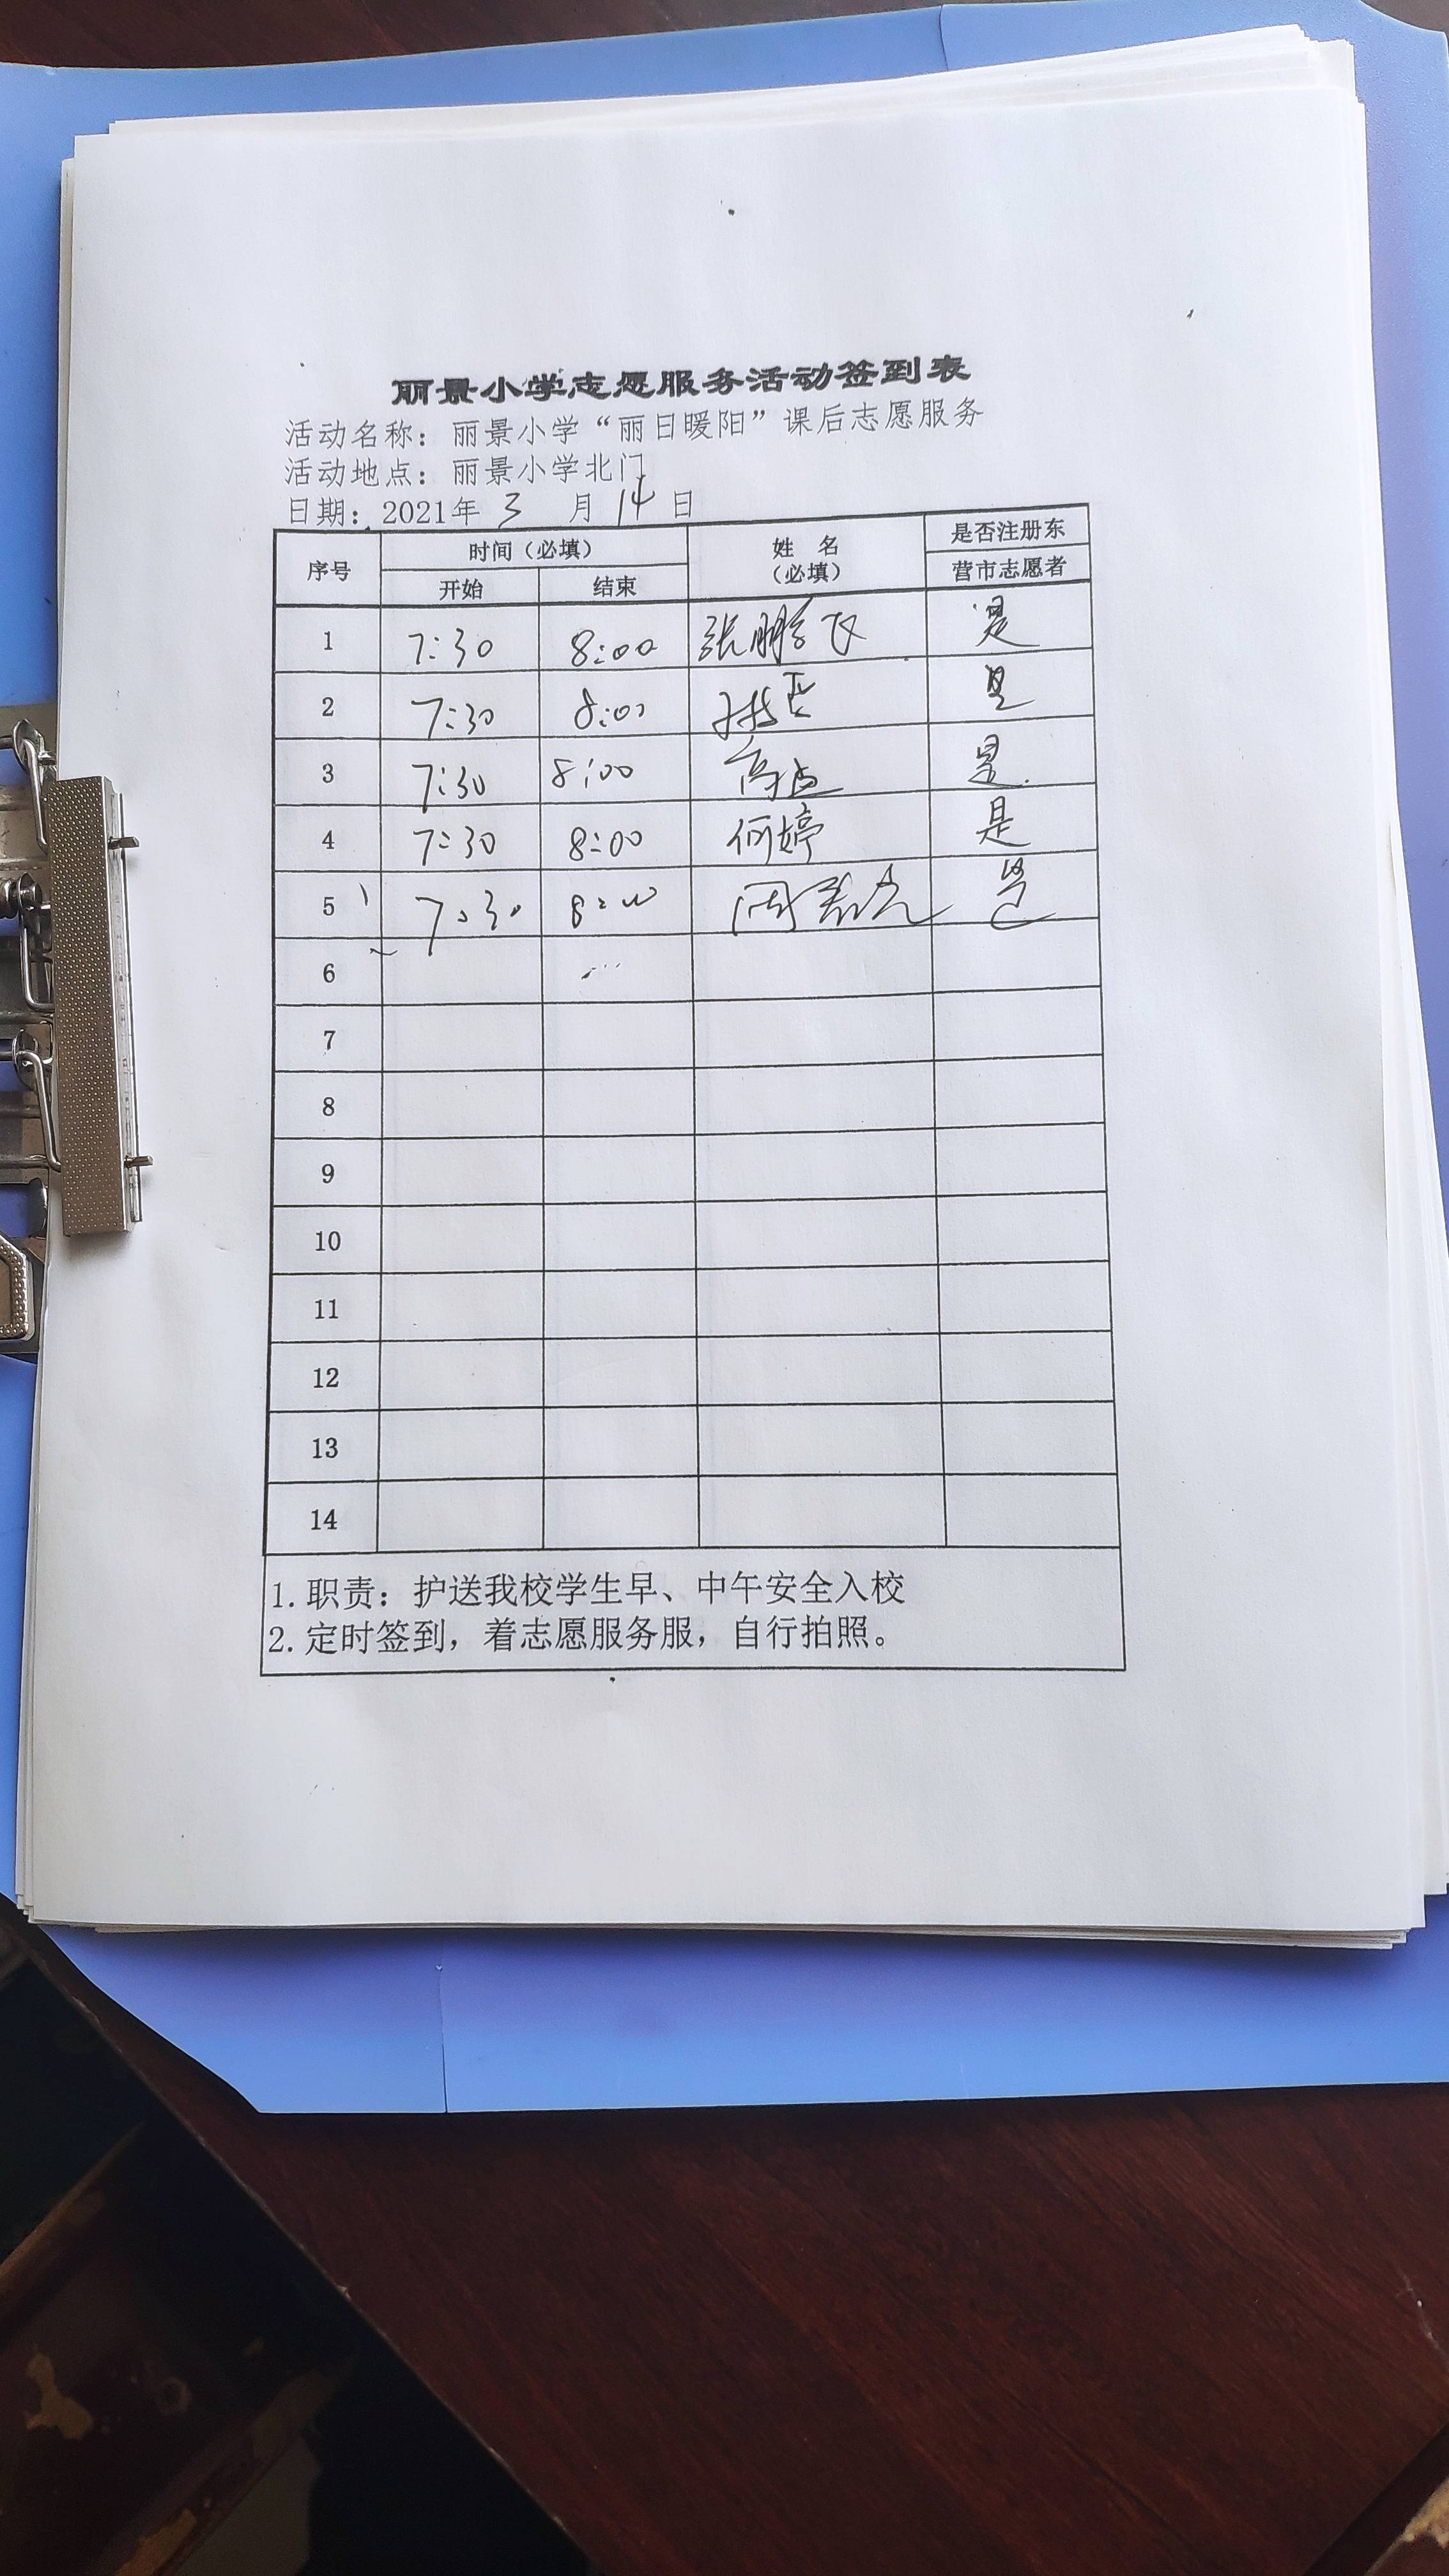 丽景小学志愿服务活动签到表
活动名称：丽景小学“丽日暖阳”课后志愿服务
活动地点：丽景小学北门
日期：2021年 3 月 14 日
序号 时间（必填） 姓 名（必填） 是否注册东营市志愿者
开始 结束
1 7:30 8:00 张鹏飞 是
2 7:30 8:00 是
3 7:30 8:00 是
4 7:30 8:00 何婷 是
5 7:30 8:00 是
6
7
8
9
10
11
12
13
14
1.职责：护送我校学生早、中午安全入校
2.定时签到，着志愿服务服，自行拍照。